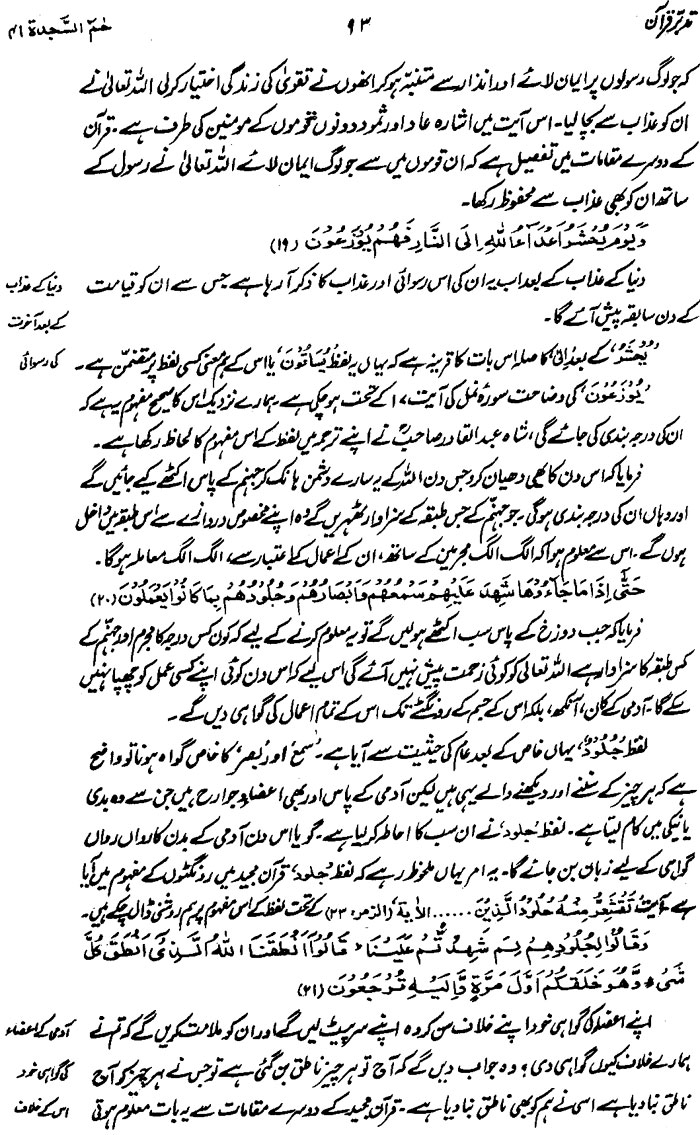 تدبر قرآن ۹۳ حٰم السَّجدۃ ۴۱
کہ جو لوگ رسولوں پر ایمان لائے اور انذار سے متنبہ ہو کر انھوں نے تقویٰ کی زندگی اختیار کر لی اللہ تعالیٰ نے
ان کو عذاب سے بچا لیا۔ اس آیت میں اشارہ عاد اور ثمود دونوں قوموں کے مومنین کی طرف ہے۔ قرآن
کے دوسرے مقامات میں تفصیل ہے کہ ان قوموں میں سے جو لوگ ایمان لائے اللہ تعالیٰ نے رسول کے
ساتھ ان کو بھی عذاب سے محفوظ رکھا۔
وَیَوْمَ یُحْشَرُ اَعْدَآءُ اللّٰہِ اِلَی النَّارِ فَھُمْ یُوْزَعُوْنَ (۱۹)
دنیا کے عذاب کے بعد اب یہ ان کی اس رسوائی اور عذاب کا ذکر آ رہا ہے جس سے ان کو قیامت
کے دن سابقہ پیش آئے گا۔
دنیا کے عذاب
کے بعد آخرت
کی رسوائی
'یُحْشَرُ' کے بعد 'اِلیٰ' کا صلہ اس بات کا قرینہ ہے کہ یہاں یہ لفظ 'یُسَاقُوْنَ' یا اس کے ہم معنی کسی لفظ پر متضمن ہے۔
'یُوْزَعُوْنَ' کی وضاحت سورۂ نمل کی آیت ۱۷ کے تحت ہو چکی ہے۔ ہمارے نزدیک اس کا صحیح مفہوم یہ ہے کہ
ان کی درجہ بندی کی جائے گی، شاہ عبدالقادر صاحبؒ نے اپنے ترجمہ میں لفظ کے اس مفہوم کا لحاظ رکھا ہے۔
فرمایا کہ اس دن کا بھی دھیان کرو جس دن اللہ کے یہ سارے دشمن ہانک کر جہنم کے پاس اکٹھے کیے جائیں گے
اور وہاں ان کی درجہ بندی ہو گی۔ جو جہنم کے جس طبقہ کے سزاوار ٹھہریں گے وہ اپنے مخصوص دروازے سے اس طبقہ میں داخل
ہوں گے۔ اس سے معلوم ہوا کہ الگ الگ مجرمین کے ساتھ، ان کے اعمال کے اعتبار سے، الگ الگ معاملہ ہو گا۔
حَتّٰٓی اِذَا مَا جَآءُوْھَا شَھِدَ عَلَیْھِمْ سَمْعُھُمْ وَاَبْصَارُھُمْ وَجُلُوْدُھُمْ بِمَا کَانُوْا یَعْمَلُوْنَ (۲۰)
فرمایا کہ جب دوزخ کے پاس سب اکٹھے ہو لیں گے تو یہ معلوم کرنے کے لیے کہ کون کس درجہ کا مجرم اور جہنم کے
کس طبقہ کا سزاوار ہے اللہ تعالیٰ کو کوئی زحمت پیش نہیں آئے گی اس لیے کہ اس دن کوئی اپنے کسی عمل کو چھپا نہیں
سکے گا۔ آدمی کے کان، آنکھ، بلکہ اس کے جسم کے رونگٹے تک اس کے تمام اعمال کی گواہی دیں گے۔
لفظ 'جُلُوْدٌ' یہاں خاص کے بعد عام کی حیثیت سے آیا ہے۔ 'سَمع' اور 'بصر' کا خاص گواہ ہونا تو واضح
ہے کہ ہر چیز کے سننے اور دیکھنے والے یہی ہیں لیکن آدمی کے پاس اور بھی اعضاء و جوارح ہیں جن سے وہ بدی
یا نیکی میں کام لیتا ہے۔ لفظ 'جلود' نے ان سب کا احاطہ کر لیا ہے۔ گویا اس دن آدمی کے بدن کا رواں رواں
گواہی کے لیے زبان بن جائے گا۔ یہ امر یہاں ملحوظ رہے کہ لفظ 'جلود' قرآن مجید میں رونگٹوں کے مفہوم میں آیا
ہے۔ آیت 'تَقْشَعِرُّ مِنْہُ جُلُوْدُ الَّذِیْنَ ...... الاٰیۃ' (الزمر: ۲۳) کے تحت لفظ کے اس مفہوم پر ہم روشنی ڈال چکے ہیں۔
وَقَالُوْا لِجُلُوْدِھِمْ لِمَ شَھِدْتُّمْ عَلَیْنَا ؕ قَالُوْٓا اَنْطَقَنَا اللّٰہُ الَّذِیْٓ اَنْطَقَ کُلَّ
شَیْءٍ وَّھُوَ خَلَقَکُمْ اَوَّلَ مَرَّۃٍ وَّاِلَیْہِ تُرْجَعُوْنَ (۲۱)
اپنے اعضا کی گواہی خود اپنے خلاف سن کر وہ اپنے سر پیٹ لیں گے اور ان کو ملامت کریں گے کہ تم نے
ہمارے خلاف کیوں گواہی دی؟ وہ جواب دیں گے کہ آج تو ہر چیز ناطق بن گئی ہے تو جس نے ہر چیز کو آج
ناطق بنا دیا ہے اسی نے ہم کو بھی ناطق بنا دیا ہے۔ قرآن مجید کے دوسرے مقامات سے یہ بات معلوم ہوتی
آدمی کے اعضاء
کی گواہی خود
اس کے خلاف